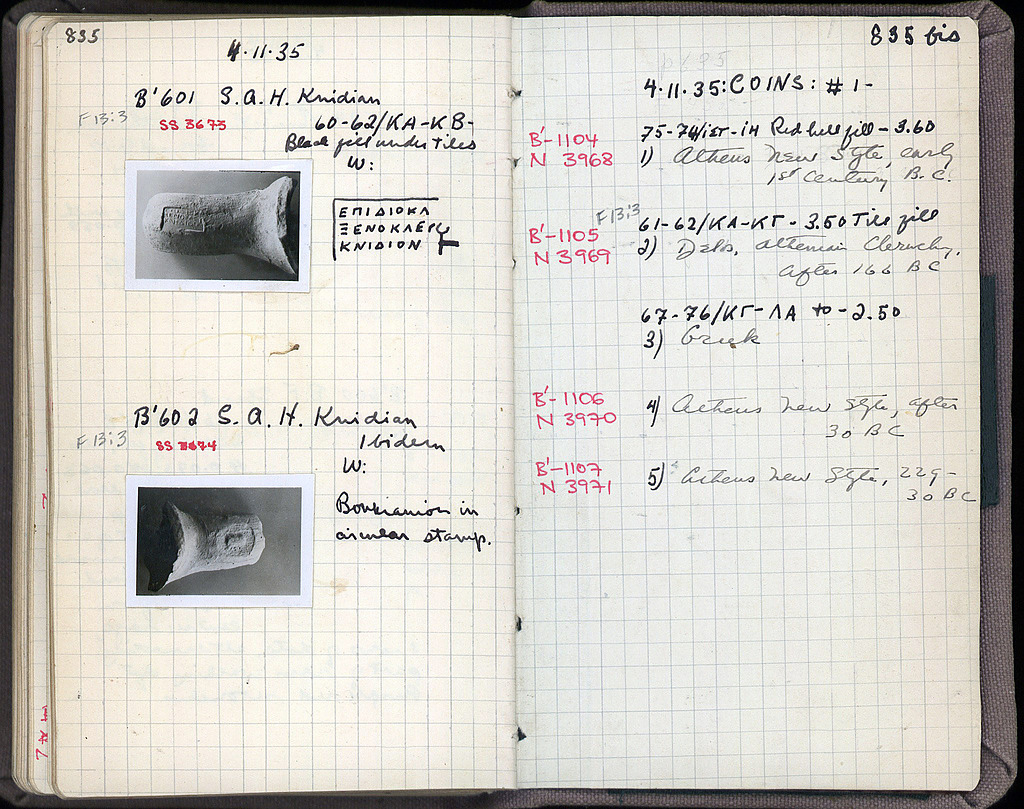 835
4·11·35
B'601 S.A.H. Knidian
F 13:3
SS 3673
60-62/ΚΑ-ΚΒ-
Black fill under tiles
W:
ΕΠΙΔΙΟΚΛ
ΞΕΝΟΚΛΕΥΣ
ΚΝΙΔΙΟΝ
B'602 S.A.H. Knidian
F 13:3
SS 3674
Ibidem
W:
Boukranion in
circular stamp.
835 bis
4·11·35: COINS: #1-
B'-1104
N 3968
Red hill fill - 3.60
1) Athens New Style, early
1st Century B.C.
F 13:3
B'-1105
N 3969
61-62/ΚΑ-ΚΓ - 3.50 Till fill
2) Delos, Athenian Cleruchy,
after 166 BC
67-76/ΚΓ-ΛΑ to -2.50
3) Greek
B'-1106
N 3970
4) Athens New Style, after
30 BC
B'-1107
N 3971
5) Athens New Style, 229-
30 BC